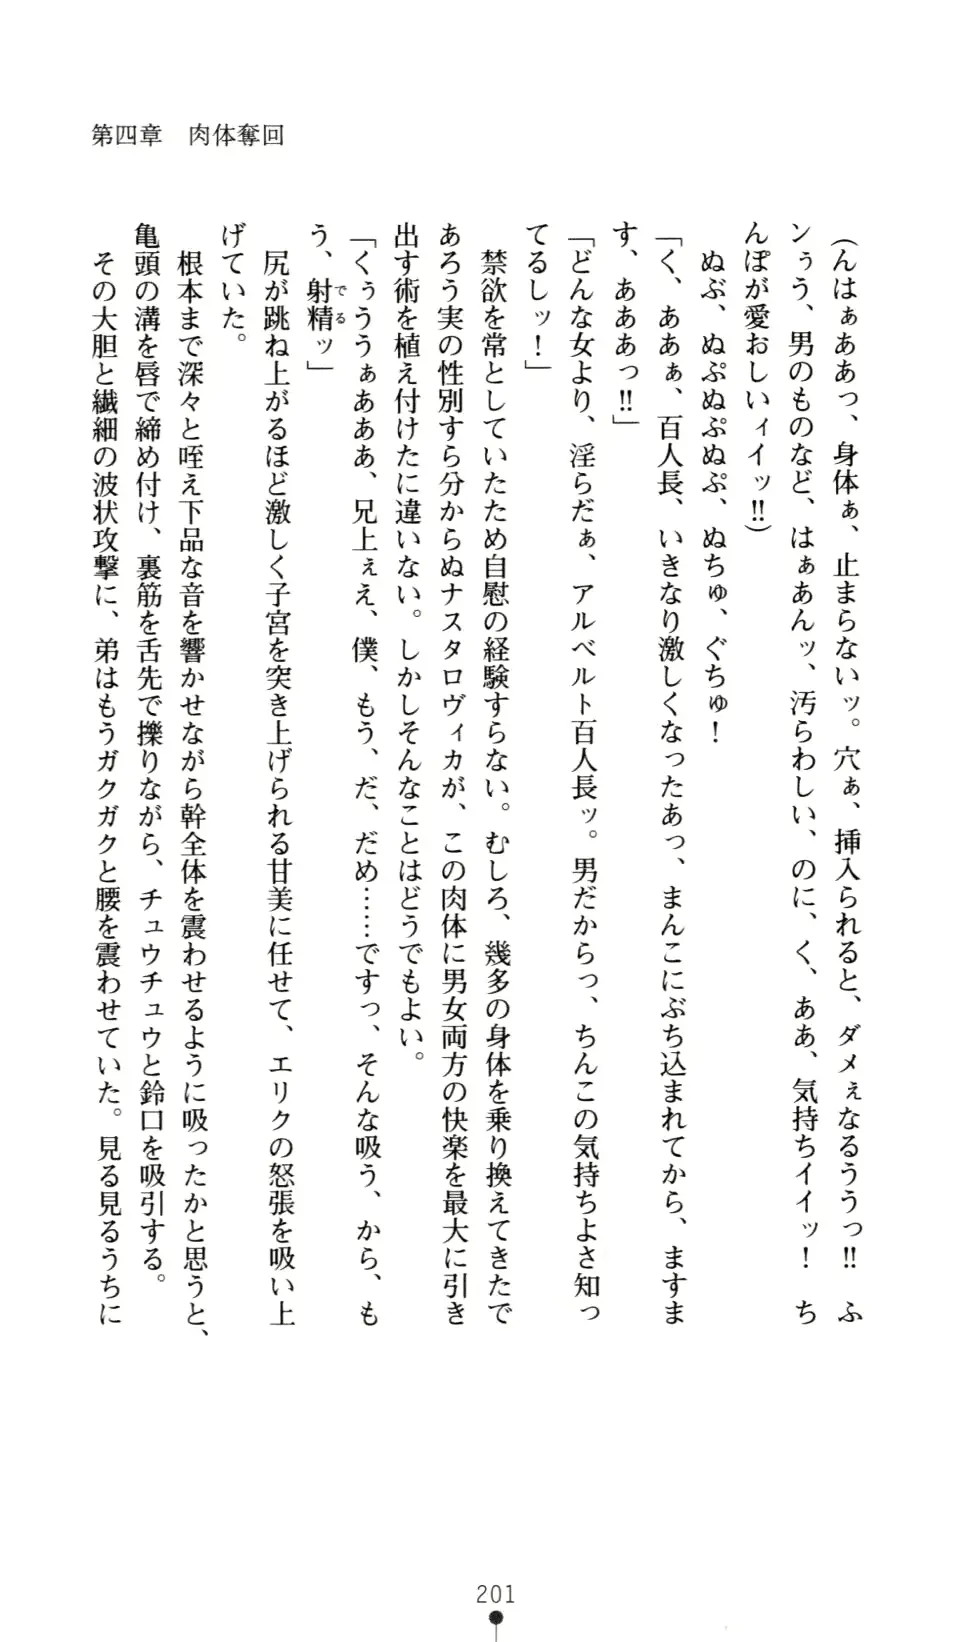 第四章　肉体奪回
(んはぁああっ、身体ぁ、止まらないッ。穴ぁ、挿入られると、ダメぇなるううっ‼　ふ
ンぅう、男のものなど、はぁあんッ、汚らわしい、のに、く、ああ、気持ちイイッ！　ち
んぽが愛おしいィイッ‼)
　ぬぶ、ぬぷぬぷぬぷ、ぬちゅ、ぐちゅ！
「く、ああぁ、百人長、いきなり激しくなったあっ、まんこにぶち込まれてから、ますま
す、あああっ‼」
「どんな女より、淫らだぁ、アルベルト百人長ッ。男だからっ、ちんこの気持ちよさ知っ
てるしッ！」
　禁欲を常としていたため自慰の経験すらない。むしろ、幾多の身体を乗り換えてきたで
あろう実の性別すら分からぬナスタロヴィカが、この肉体に男女両方の快楽を最大に引き
出す術を植え付けたに違いない。しかしそんなことはどうでもよい。
「くぅううぁあああ、兄上ぇえ、僕、もう、だ、だめ……ですっ、そんな吸う、から、も
う、射精でるッ」
　尻が跳ね上がるほど激しく子宮を突き上げられる甘美に任せて、エリクの怒張を吸い上
げていた。
　根本まで深々と咥え下品な音を響かせながら幹全体を震わせるように吸ったかと思うと、
亀頭の溝を唇で締め付け、裏筋を舌先で擽りながら、チュウチュウと鈴口を吸引する。
　その大胆と繊細の波状攻撃に、弟はもうガクガクと腰を震わせていた。見る見るうちに
201